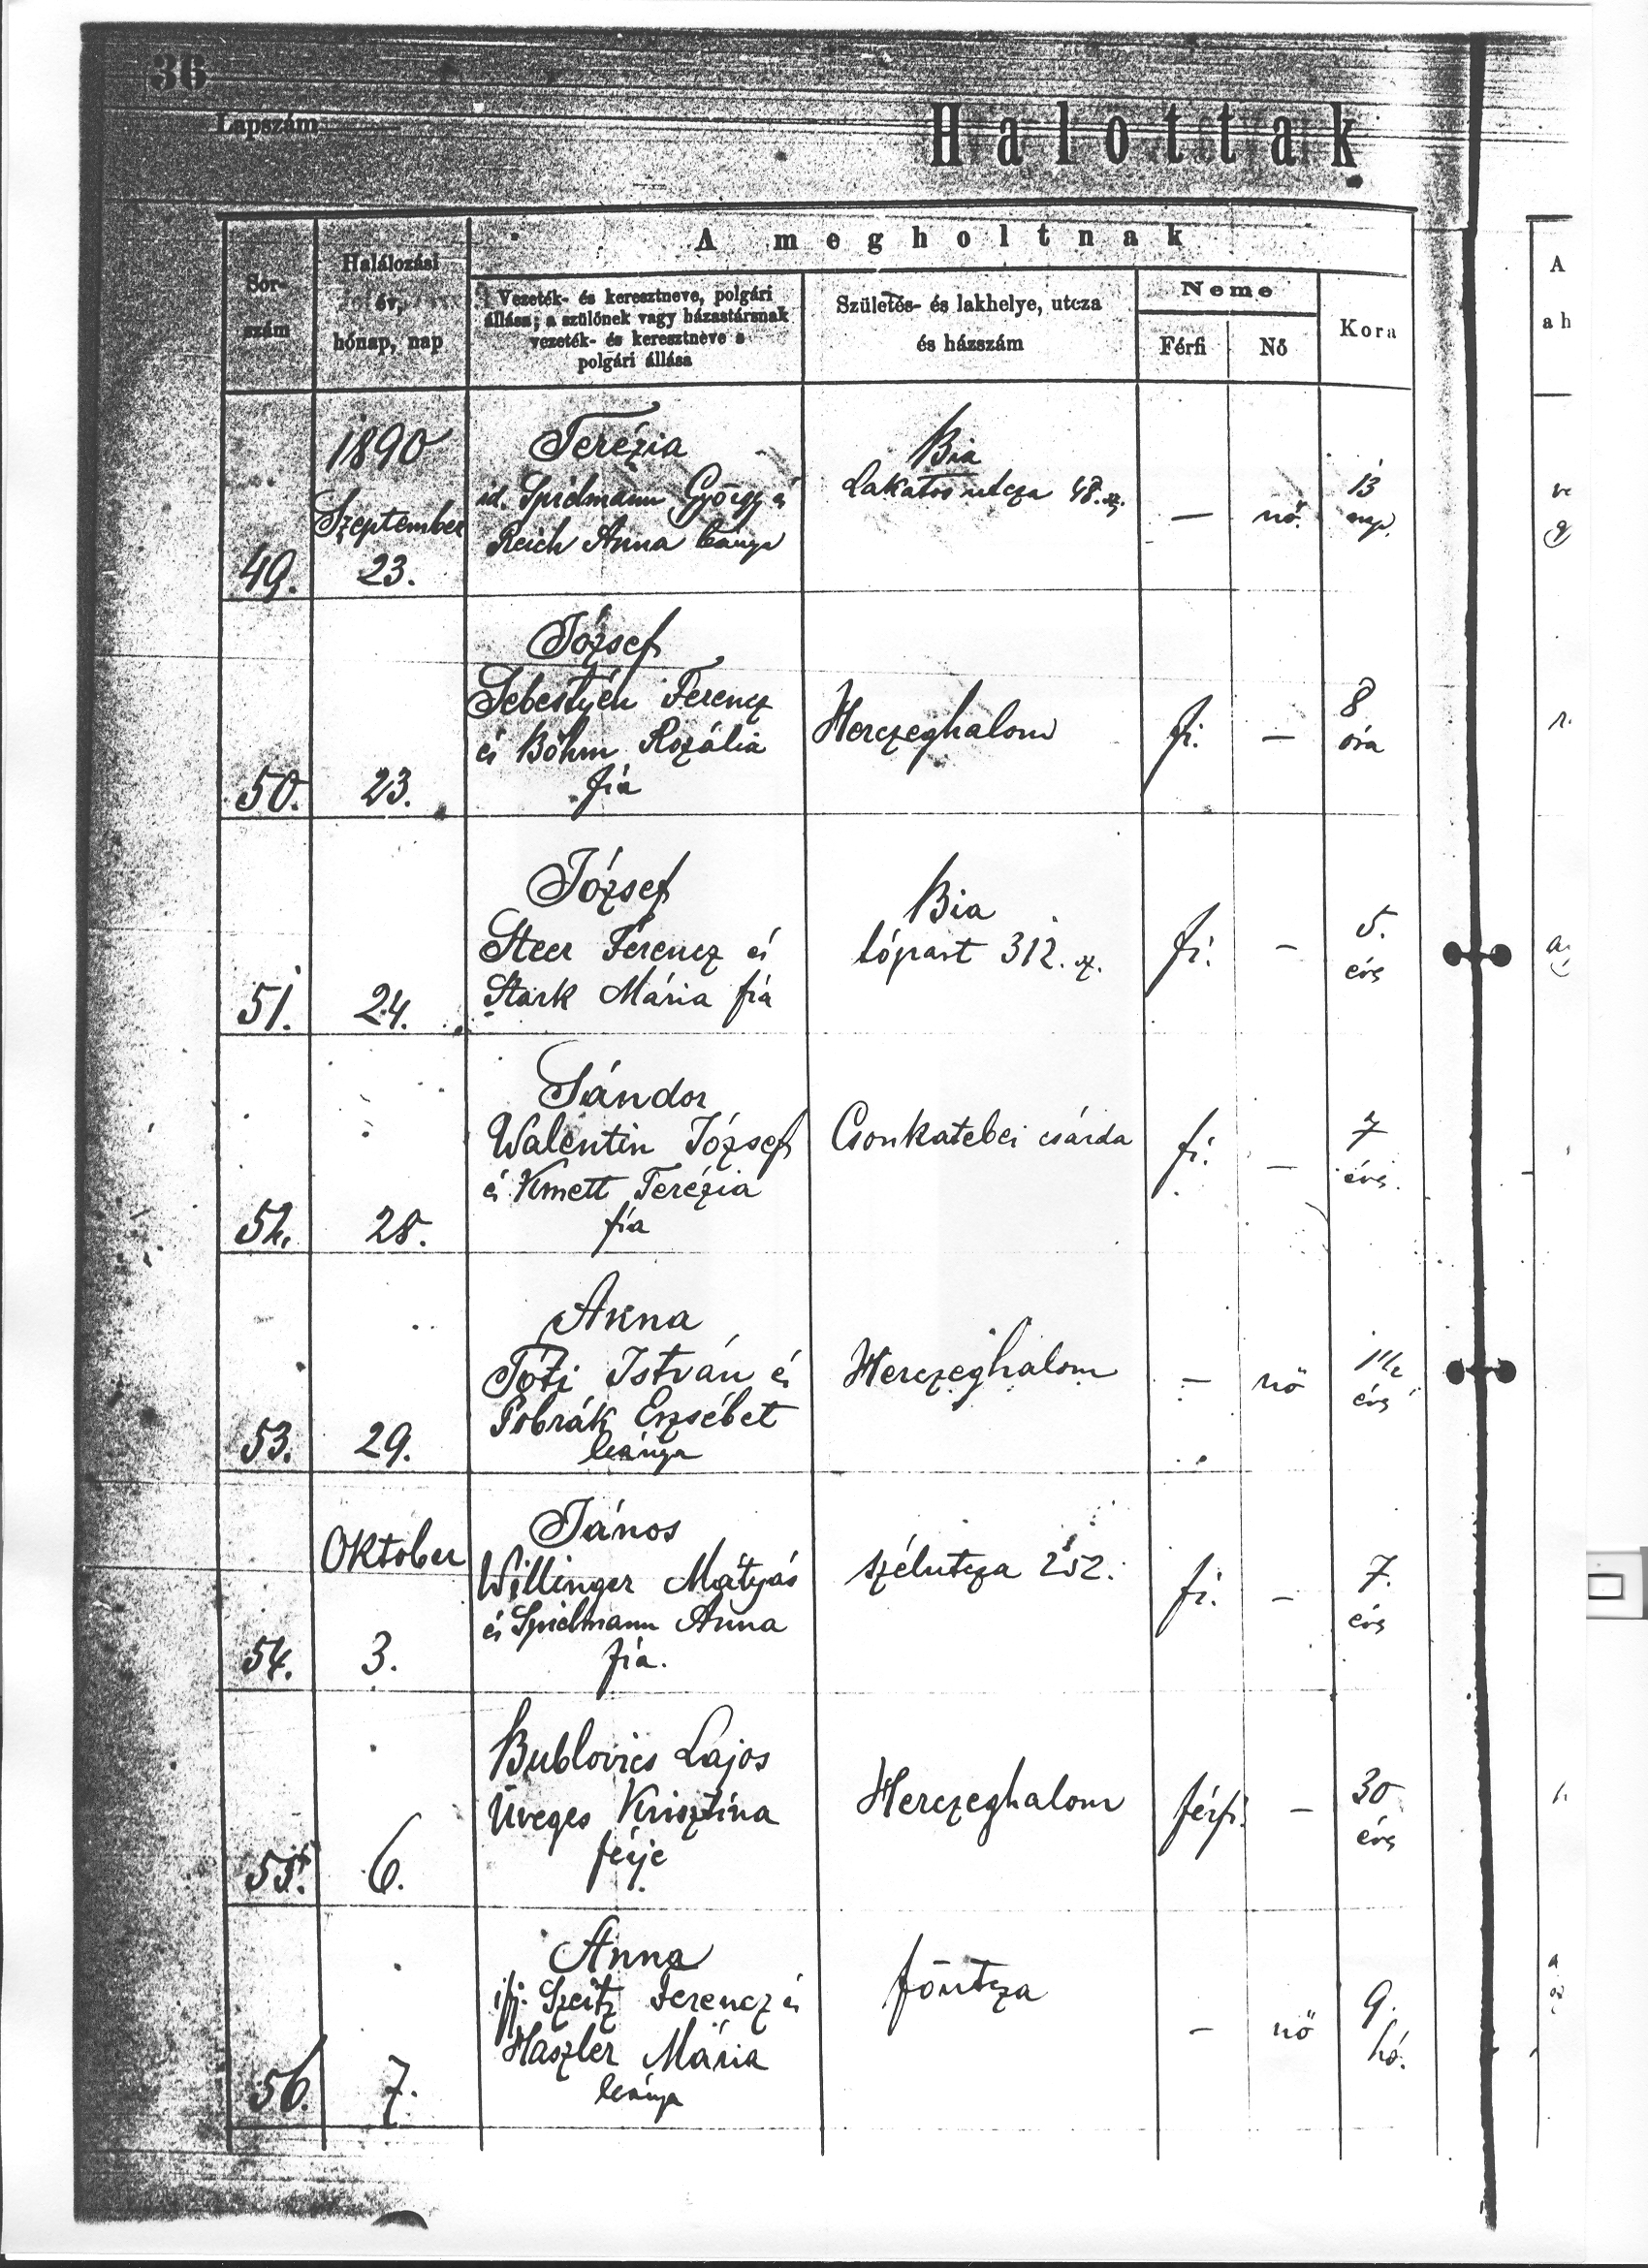 36
Lapszám
Halottak
A megholtnak
Sor-
szám
Halálozási
év,
hónap, nap
Vezeték- és keresztneve, polgári
állása; a szülőnek vagy házastársnak
vezeték- és keresztneve s
polgári állása
Születés- és lakhelye, utcza
és házszám
Neme
Férfi
Nő
Kora
A
a h
1890
Szeptember
49.
23.
Terézia
id. Spielmann György és
Reich Anna leánya
Bia
Lakatos utcza 48. sz.
—
nő.
13
nap.
50.
23.
József
Sebestyén Ferencz
és Böhm Rozália
fia
Herczeghalom
fi.
—
8
óra
51.
24.
József
Steer Ferencz és
Stark Mária fia
Bia
tópart 312. sz.
fi.
—
5.
éves
52.
28.
Sándor
Walentin József
és Kmett Terézia
fia
Csonkatebei csárda
fi.
—
7
éves
53.
29.
Anna
Tóti István és
Pobrák Erzsébet
leánya
Herczeghalom
—
nő
1 1/2
éves
Oktober
54.
3.
János
Willinger Mátyás
és Spielmann Anna
fia.
szélutcza 252.
fi.
—
7.
éves
55.
6.
Bublovics Lajos
Üveges Krisztina
férje
Herczeghalom
férfi.
—
30
éves
56.
7.
Anna
ifj. Szeitz Ferencz és
Haszler Mária
leánya
főutcza
—
nő
9.
hó.